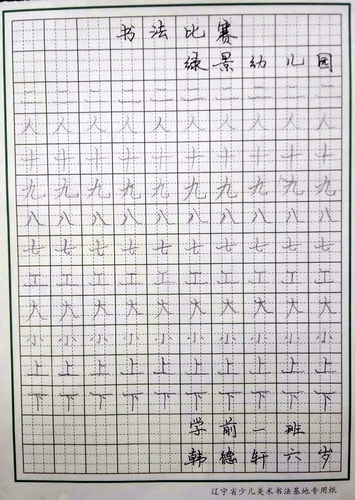 书法比赛
绿景幼儿园
二二二二二二二二二二
人人人人人人人人人人
九九九九九九九九九九
八八八八八八八八八八
七七七七七七七七七七
工工工工工工工工工工
大大大大大大大大大大
小小小小小小小小小小
上上上上上上上上上上
下下下下下下下下下下
学前一班
韩德轩六岁
辽宁省少儿美术书法基地专用纸